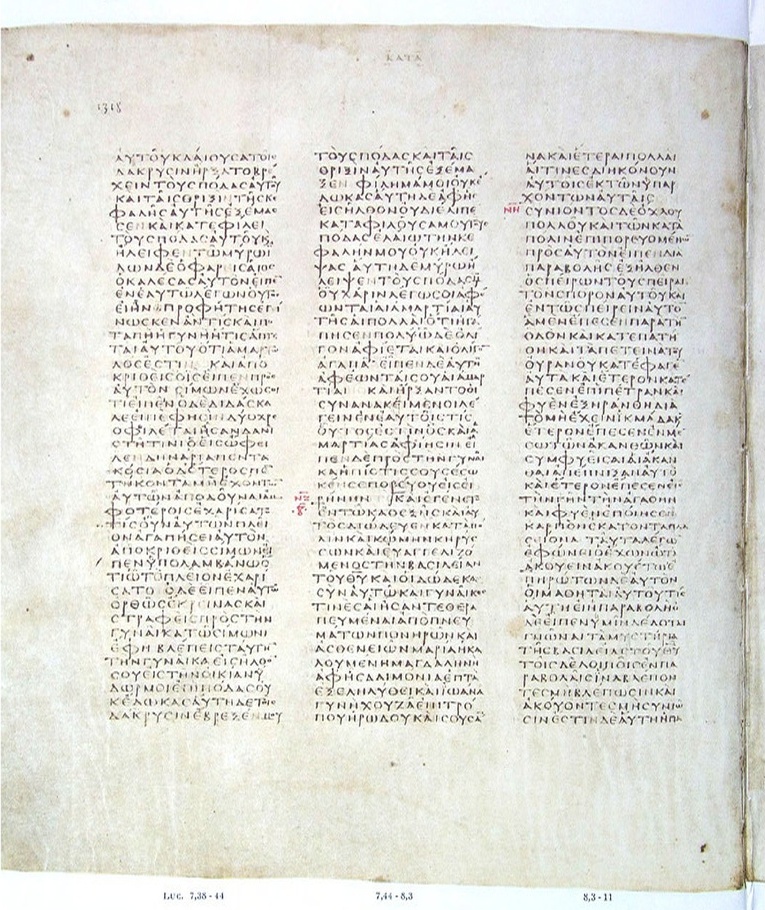 ΚΑΤΑ
1318
ΑΥΤΟΥΚΛΑΙΟΥϹΑΤΟΙϹ
ΔΑΚΡΥϹΙΝΗΡΞΑΤΟΒΡΕ
ΧΕΙΝΤΟΥϹΠΟΔΑϹΑΥΤΟΥ
ΚΑΙΤΑΙϹΘΡΙΞΙΝΤΗϹΚΕ
ΦΑΛΗϹΑΥΤΗϹΕΞΕΜΑϹ
ϹΕΝΚΑΙΚΑΤΕΦΙΛΕΙ
ΤΟΥϹΠΟΔΑϹΑΥΤΟΥΚ
ΗΛΕΙΦΕΝΤΩΜΥΡΩΙ
ΔΩΝΔΕΟΦΑΡΕΙϹΑΙΟϹ
ΟΚΑΛΕϹΑϹΑΥΤΟΝΕΙΠΕ
ΕΝΕΑΥΤΩΛΕΓΩΝΟΥΤΟϹ
ΕΙΗΝΟΠΡΟΦΗΤΗϹΕΓΙ
ΝΩϹΚΕΝΑΝΤΙϹΚΑΙΠΟ
ΤΑΠΗΗΓΥΝΗΗΤΙϹΑΠΤΕ
ΤΑΙΑΥΤΟΥΟΤΙΑΜΑΡΤΩ
ΛΟϹΕϹΤΙΝ ΚΑΙΑΠΟ
ΚΡΙΘΕΙϹΟΙϹΕΙΠΕΝΠΡΟϹ
ΑΥΤΟΝϹΙΜΩΝΕΧΩϹΟΙ
ΤΙΕΙΠΕΙΝΟΔΕΔΙΔΑϹΚΑ
ΛΕΕΙΠΕΦΗϹΙΝΔΥΟΧΡΕ
ΟΦΙΛΕΤΑΙΗϹΑΝΔΑΝΙ
ϹΤΗΤΙΝΙΟΕΙϹΩΦΕΙ
ΛΕΝΔΗΝΑΡΙΑΠΕΝΤΑ
ΚΟϹΙΑΟΔΕΤΕΡΟϹΠΕ
ΤΗΚΟΝΤΑΜΗΕΧΟΝΤΩ
ΑΥΤΩΝΑΠΟΔΟΥΝΑΙΑΜ
ΦΟΤΕΡΟΙϹΕΧΑΡΙϹΑΤΟ
ΤΙϹΟΥΝΑΥΤΩΝΠΛΕΙ
ΟΝΑΓΑΠΗϹΕΙΑΥΤΟΝ
ΑΠΟΚΡΙΘΕΙϹϹΙΜΩΝΕΙ
ΠΕΝΥΠΟΛΑΜΒΑΝΩΟ
ΤΙΩΤΟΠΛΕΙΟΝΕΧΑΡΙ
ϹΑΤΟ ΟΔΕΕΙΠΕΝΑΥΤΩ
ΟΡΘΩϹΕΚΡΕΙΝΑϹΚΑΙ
ϹΤΡΑΦΕΙϹΠΡΟϹΤΗΝ
ΓΥΝΑΙΚΑΤΩϹΙΜΩΝΙ
ΕΦΗΒΛΕΠΕΙϹΤΑΥΤΗ
ΤΗΝΓΥΝΑΙΚΑΕΙϹΗΛΘΟ
ϹΟΥΕΙϹΤΗΝΟΙΚΙΑΝΥ
ΔΩΡΜΟΙΕΠΙΠΟΔΑϹΟΥ
ΚΕΔΩΚΑϹΑΥΤΗΔΕΤΟΙϹ
ΔΑΚΡΥϹΙΝΕΒΡΕΞΕΝΜΟΥ
ΤΟΥϹΠΟΔΑϹΚΑΙΤΑΙϹ
ΘΡΙΞΙΝΑΥΤΗϹΕΞΕΜΑ
ΞΕΝ ΦΙΛΗΜΑΜΟΙΟΥΚΕ
ΔΩΚΑϹΑΥΤΗΔΕΑΦΗϹ
ΕΙϹΗΛΘΟΝΟΥΔΙΕΛΙΠΕ
ΚΑΤΑΦΙΛΟΥϹΑΜΟΥΤΟΥϹ
ΠΟΔΑϹΕΛΑΙΩΤΗΝΚΕ
ΦΑΛΗΝΜΟΥΟΥΚΗΛΕΙ
ΨΑϹΑΥΤΗΔΕΜΥΡΩΗ
ΛΕΙΨΕΝΤΟΥϹΠΟΔΑϹΜΟΥ
ΟΥΧΑΡΙΝΛΕΓΩϹΟΙΑΦΕ
ΩΝΤΑΙΑΙΑΜΑΡΤΙΑΙΑΥ
ΤΗϹΑΙΠΟΛΛΑΙΟΤΙΗΓΑ
ΠΗϹΕΝΠΟΛΥΩΔΕΟΛΙ
ΓΟΝΑΦΙΕΤΑΙΚΑΙΟΛΙΓΟΝ
ΑΓΑΠΑ ΕΙΠΕΝΔΕΑΥΤΗ
ΑΦΕΩΝΤΑΙϹΟΥΑΙΑΜΑΡ
ΤΙΑΙ ΚΑΙΗΡΞΑΝΤΟΟΙ
ϹΥΝΑΝΑΚΕΙΜΕΝΟΙΛΕ
ΓΕΙΝΕΝΕΑΥΤΟΙϹΤΙϹ
ΟΥΤΟϹΕϹΤΙΝΟϹΚΑΙΑ
ΜΑΡΤΙΑϹΑΦΙΗϹΙΝ ΕΙ
ΠΕΝΔΕΠΡΟϹΤΗΝΓΥΝΑΙ
ΚΑΗΠΙϹΤΙϹϹΟΥϹΕϹΩ
ΚΕΝϹΕΠΟΡΕΥΟΥΕΙϹΕΙ
ΝΖ
ΡΗΝΗΝ ΚΑΙΕΓΕΝΕ
Η
ΕΝΤΩΚΑΘΕΞΗϹΚΑΙΑΥ
ΤΟϹΔΙΩΔΕΥΕΝΚΑΤΑΠΟ
ΛΙΝΚΑΙΚΩΜΗΝΚΗΡΥϹ
ϹΩΝΚΑΙΕΥΑΓΓΕΛΙΖΟ
ΜΕΝΟϹΤΗΝΒΑϹΙΛΕΙΑΝ
ΤΟΥΘΥΚΑΙΟΙΔΩΔΕΚΑ
ϹΥΝΑΥΤΩΚΑΙΓΥΝΑΙΚΕϹ
ΤΙΝΕϹΑΙΗϹΑΝΤΕΘΕΡΑ
ΠΕΥΜΕΝΑΙΑΠΟΠΝΕΥ
ΜΑΤΩΝΠΟΝΗΡΩΝΚΑΙ
ΑϹΘΕΝΕΙΩΝΜΑΡΙΑΗΚΑ
ΛΟΥΜΕΝΗΜΑΓΔΑΛΗΝΗ
ΑΦΗϹΔΑΙΜΟΝΙΑΕΠΤΑ
ΕΞΕΛΗΛΥΘΕΙΚΑΙΙΩΑΝΑ
ΓΥΝΗΧΟΥΖΑΕΠΙΤΡΟ
ΠΟΥΗΡΩΔΟΥΚΑΙϹΟΥϹΑ
ΝΑΚΑΙΕΤΕΡΑΙΠΟΛΛΑΙ
ΑΙΤΙΝΕϹΔΙΗΚΟΝΟΥΝ
ΑΥΤΟΙϹΕΚΤΩΝΥΠΑΡ
ΧΟΝΤΩΝΑΥΤΑΙϹ
ΝΗ
ϹΥΝΙΟΝΤΟϹΔΕΟΧΛΟΥ
ΠΟΛΛΟΥΚΑΙΤΩΝΚΑΤΑ
ΠΟΛΙΝΕΠΙΠΟΡΕΥΟΜΕΝΩ
ΠΡΟϹΑΥΤΟΝΕΙΠΕΝΔΙΑ
ΠΑΡΑΒΟΛΗϹΕΞΗΛΘΕΝ
ΟϹΠΕΙΡΩΝΤΟΥϹΠΕΙΡΑΙ
ΤΟΝϹΠΟΡΟΝΑΥΤΟΥΚΑΙ
ΕΝΤΩϹΠΕΙΡΕΙΝΑΥΤΟ
ΑΜΕΝΕΠΕϹΕΝΠΑΡΑΤΗ
ΟΔΟΝΚΑΙΚΑΤΕΠΑΤΗ
ΘΗΚΑΙΤΑΠΕΤΕΙΝΑΤΟΥ
ΟΥΡΑΝΟΥΚΑΤΕΦΑΓΕ
ΑΥΤΑΚΑΙΕΤΕΡΟΝΚΑΤΕ
ΠΕϹΕΝΕΠΙΠΕΤΡΑΝΚΑΙ
ΦΥΕΝΕΞΗΡΑΝΘΗΔΙΑ
ΤΟΜΗΕΧΕΙΝΙΚΜΑΔΑΚ
ΕΤΕΡΟΝΕΠΕϹΕΝΕΝΜΕ
ϹΩΤΩΝΑΚΑΝΘΩΝΚΑΙ
ϹΥΜΦΥΕΙϹΑΙΑΙΑΚΑΝ
ΘΑΙΑΠΕΠΝΙΞΑΝΑΥΤΟ
ΚΑΙΕΤΕΡΟΝΕΠΕϹΕΝΕΙϹ
ΤΗΝΓΗΝΤΗΝΑΓΑΘΗΝ
ΚΑΙΦΥΕΝΕΠΟΙΗϹΕ
ΚΑΡΠΟΝΕΚΑΤΟΝΤΑΠΛΑ
ϹΙΟΝΑ ΤΑΥΤΑΛΕΓΩ
ΕΦΩΝΕΙΟΕΧΩΝΩΤΑ
ΑΚΟΥΕΙΝΑΚΟΥΕΤΩ
ΠΗΡΩΤΩΝΔΕΑΥΤΟΝ
ΟΙΜΑΘΗΤΑΙΑΥΤΟΥΤΙϹ
ΑΥΤΗΕΙΗΠΑΡΑΒΟΛΗΟ
ΔΕΕΙΠΕΝΥΜΙΝΔΕΔΟΤΑΙ
ΓΝΩΝΑΙΤΑΜΥϹΤΗΡΙΑ
ΤΗϹΒΑϹΙΛΕΙΑϹΤΟΥΘΥ
ΤΟΙϹΔΕΛΟΙΠΟΙϹΕΝΠΑ
ΡΑΒΟΛΑΙϹΙΝΑΒΛΕΠΟΝ
ΤΕϹΜΗΒΛΕΠΩϹΙΝΚΑΙ
ΑΚΟΥΟΝΤΕϹΜΗϹΥΝΙΩ
ϹΙΝΕϹΤΙΝΔΕΑΥΤΗΗΠΑ
Luc. 7,38 - 44
7,44 - 8,3
8,3 - 11